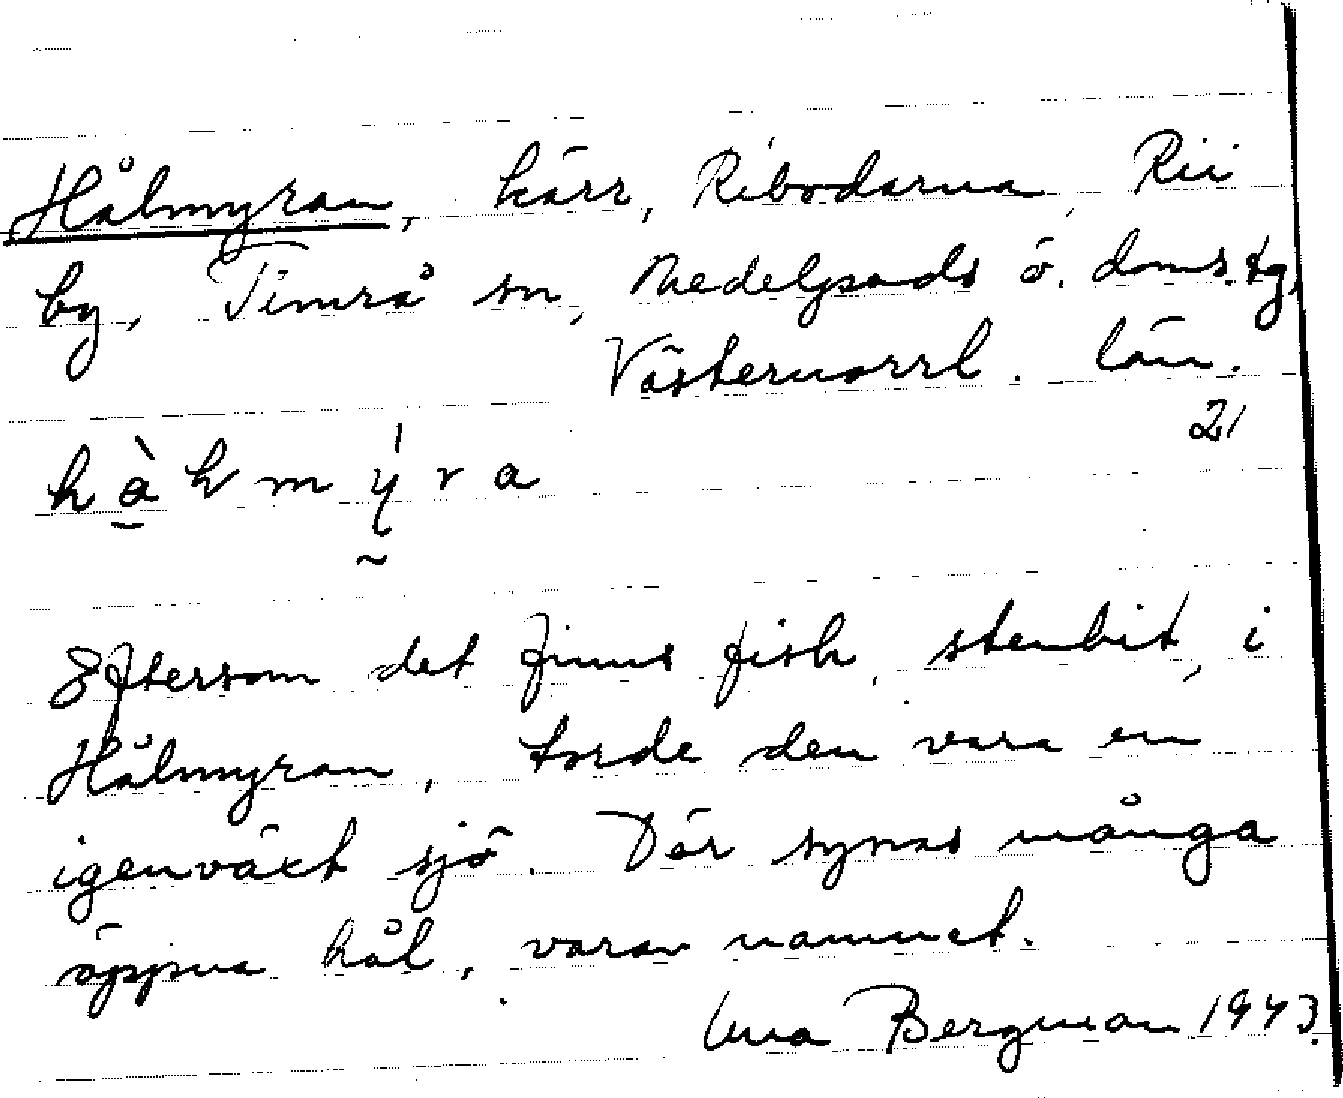 Hålmyran, kärr, Ribodarna, Rii
by, Timrå sn, Medelpads ö. doms.tg,
Västernorrl. län.
21
Eftersom det finns fisk, stenbit, i
Hålmyran, torde den vara en
igenväxt sjö. Där synas många
öppna hål, varav namnet.
Bergman 1943.